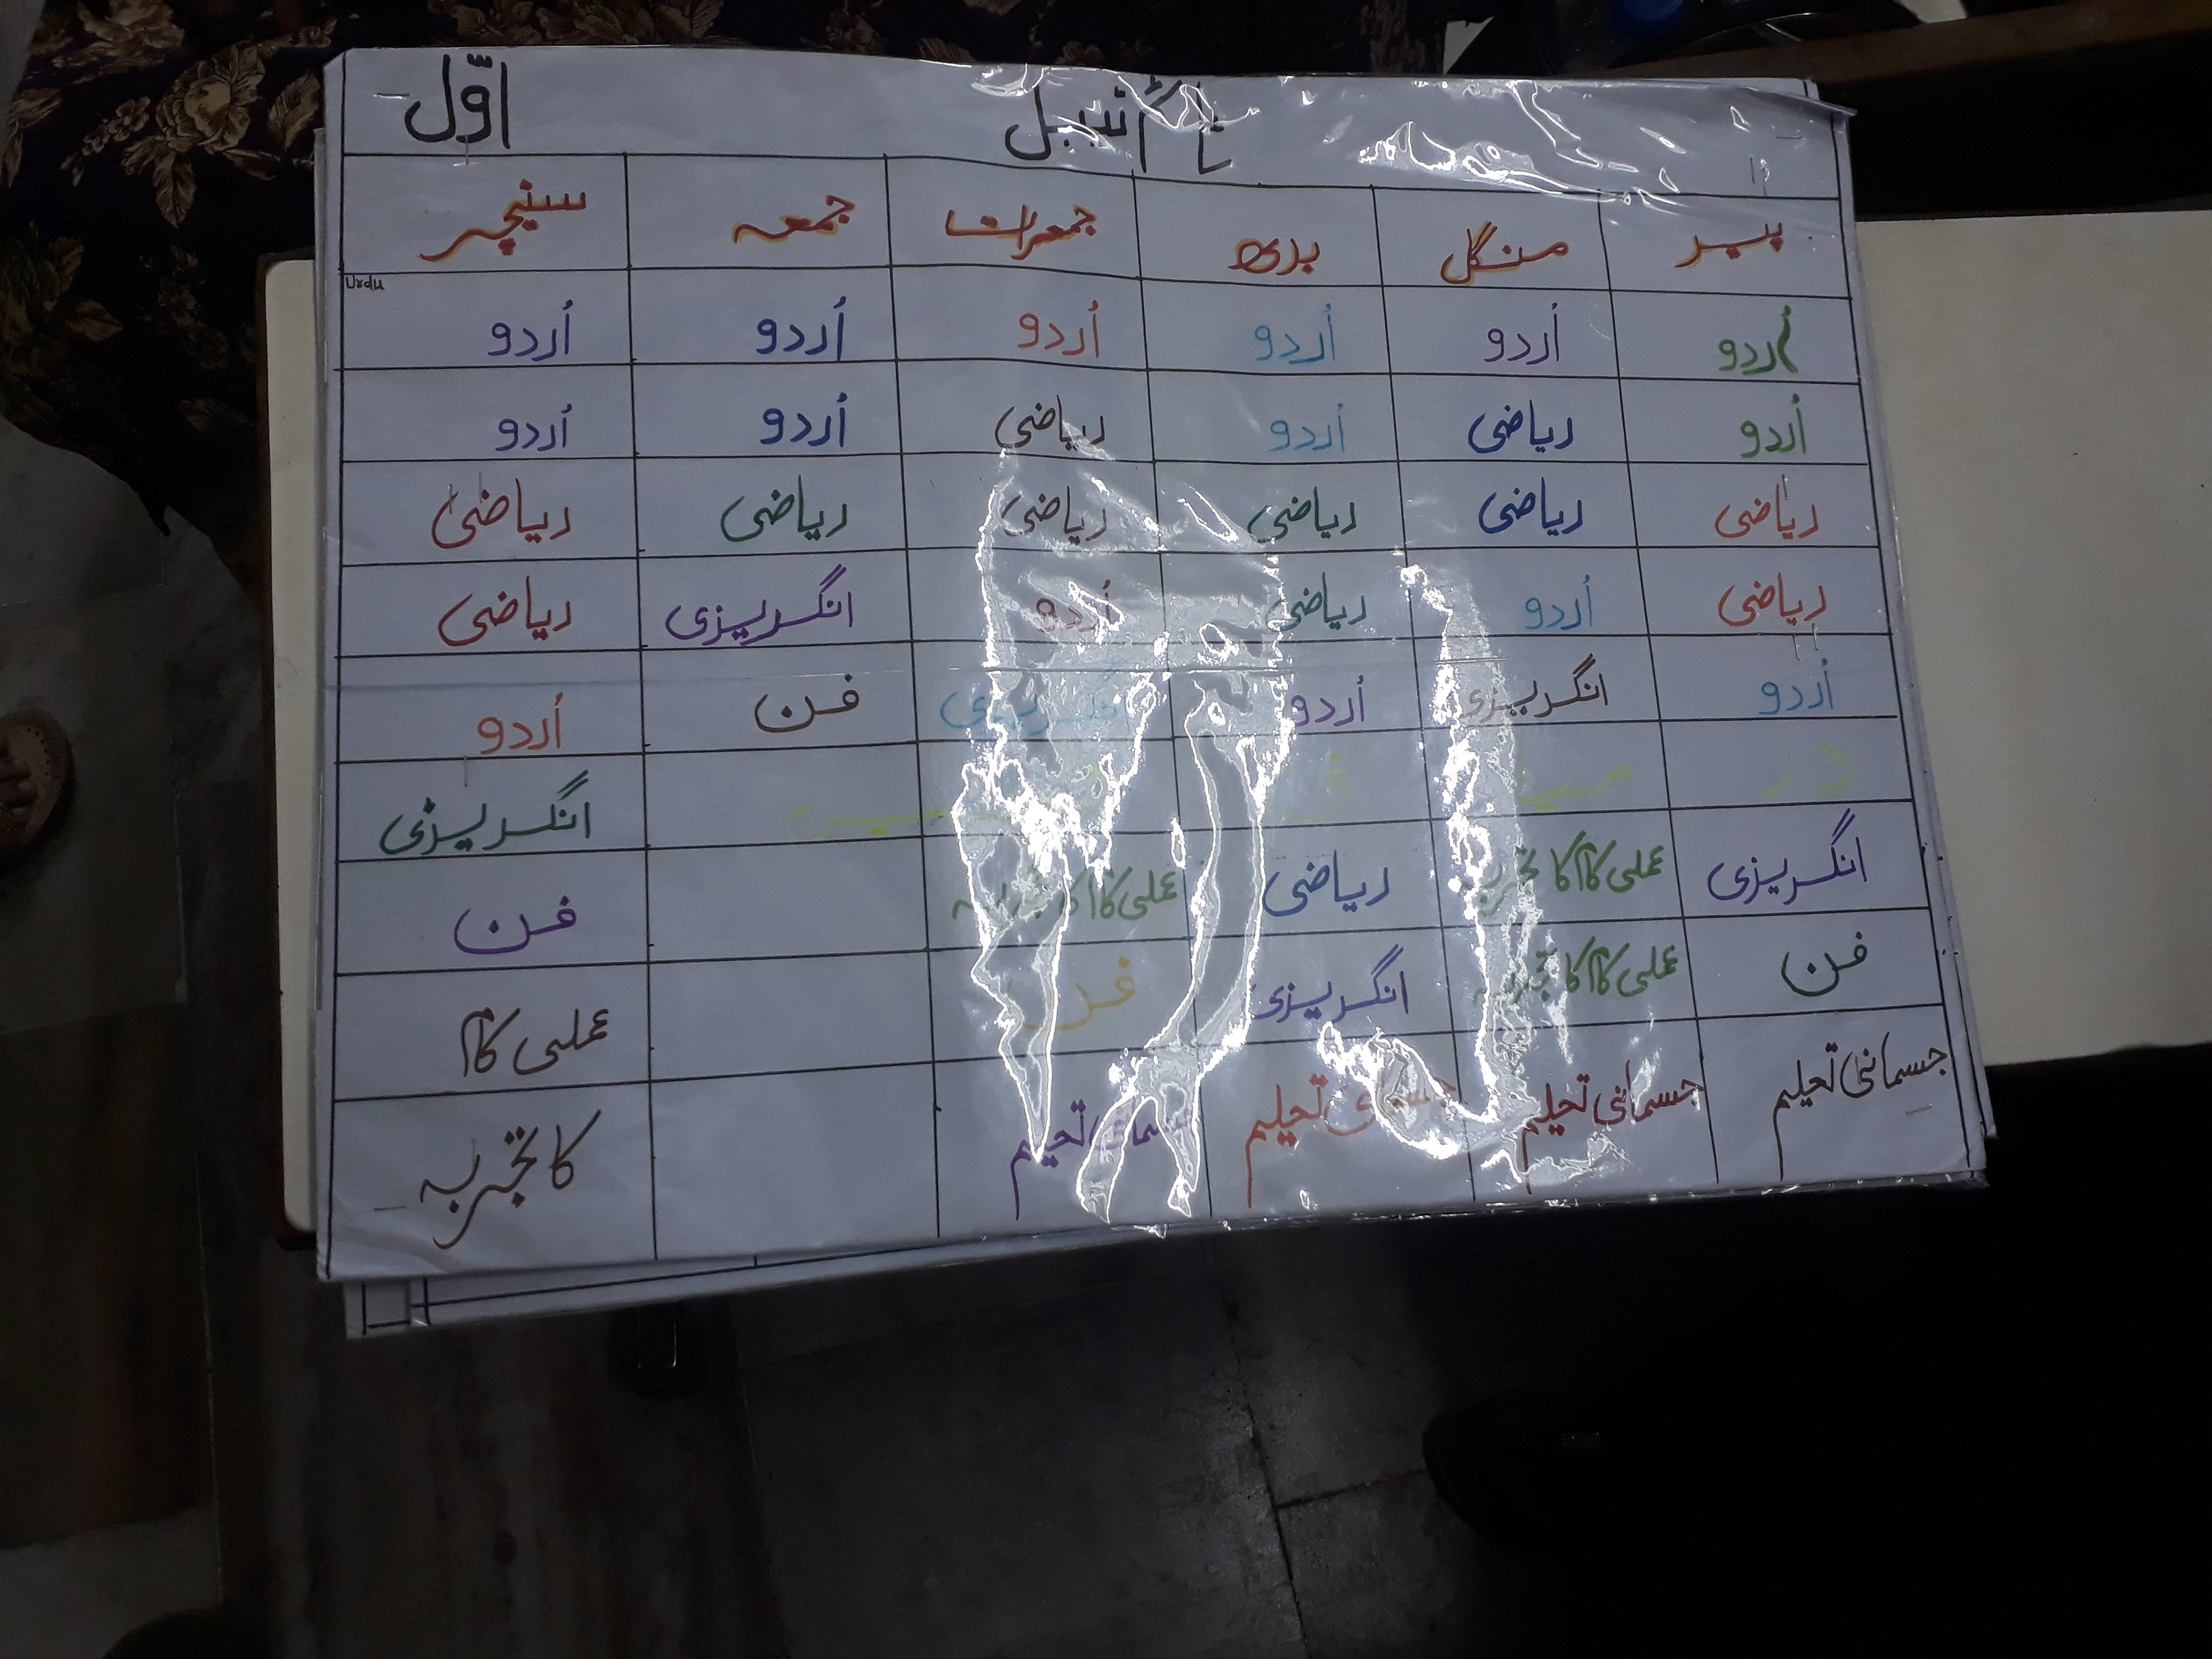 ٹائم ٹیبل اوّل
پیر منگل بدھ جمعرات جمعہ سنیچر
Urdu
اُردو اُردو اُردو اُردو اُردو اُردو
اُردو ریاضی اُردو ریاضی اُردو اُردو
ریاضی ریاضی ریاضی ریاضی ریاضی ریاضی
ریاضی اُردو ریاضی اُردو انگریزی ریاضی
اُردو انگریزی اُردو انگریزی فن اُردو
در میا نی انگریزی
انگریزی عملی کام کا تجربہ ریاضی عملی کام کا تجربہ فن
فن عملی کام کا تجربہ انگریزی فن عملی کام
جسمانی تعلیم جسمانی تعلیم جسمانی تعلیم جسمانی تعلیم کا تجربہ